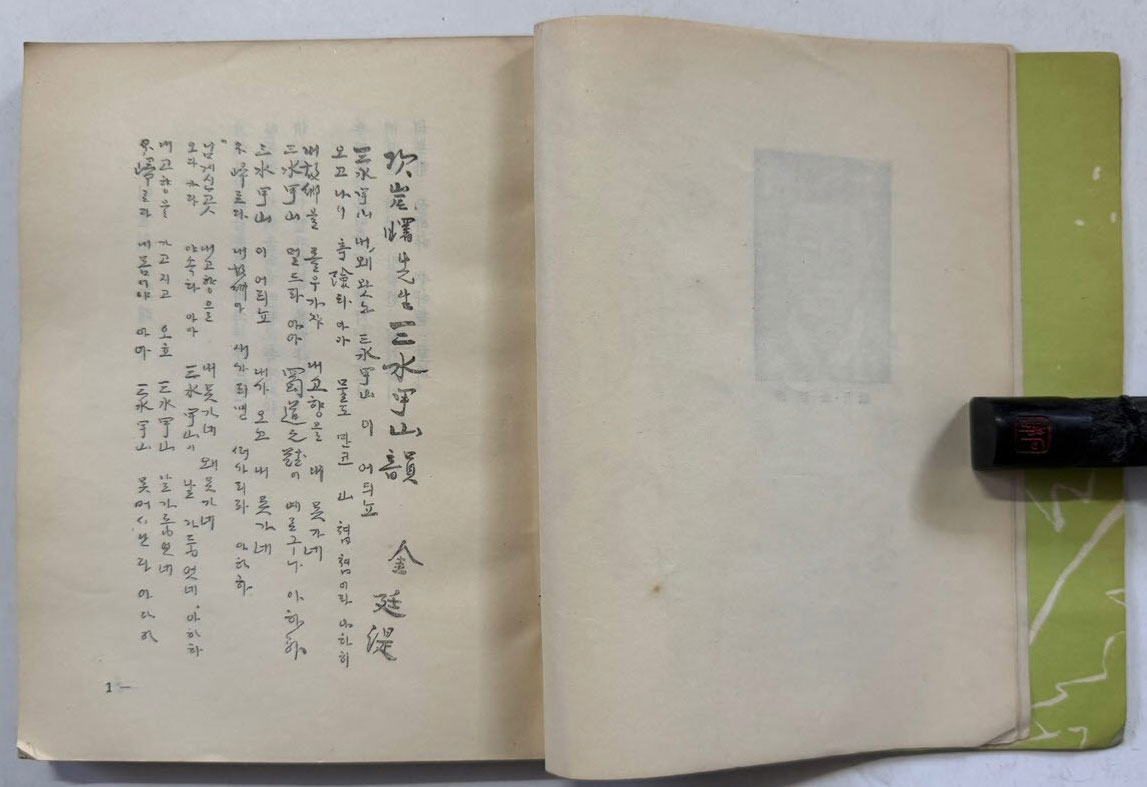 次岸曙先生三水甲山韻 金廷湜
三水甲山 내 왜 왓노 三水甲山 이 어듸뇨
오고나니 奇險타 아아 물도 만코 山 쳡쳡이라 아하하
내 故鄕을 돌우가쟈 내 고향을 내 못가네
三水甲山 멀드라 아아 蜀道之難이 예로구나 아하하
三水甲山 이 어듸뇨 내가 오고 내 못가네
不歸로다 내 故鄕아 새가 되면 떠가리라 아하하
님계신곳 내고향을 내못가네 왜못가네
오다 가다 야속타 아아 三水甲山이 날 가둡엇네 아하하
내고향을 가고지고 오호 三水甲山 날 가둡엇네
不歸로다 내 몸이야 아아 三水甲山 못버서난다 아하하
1 —